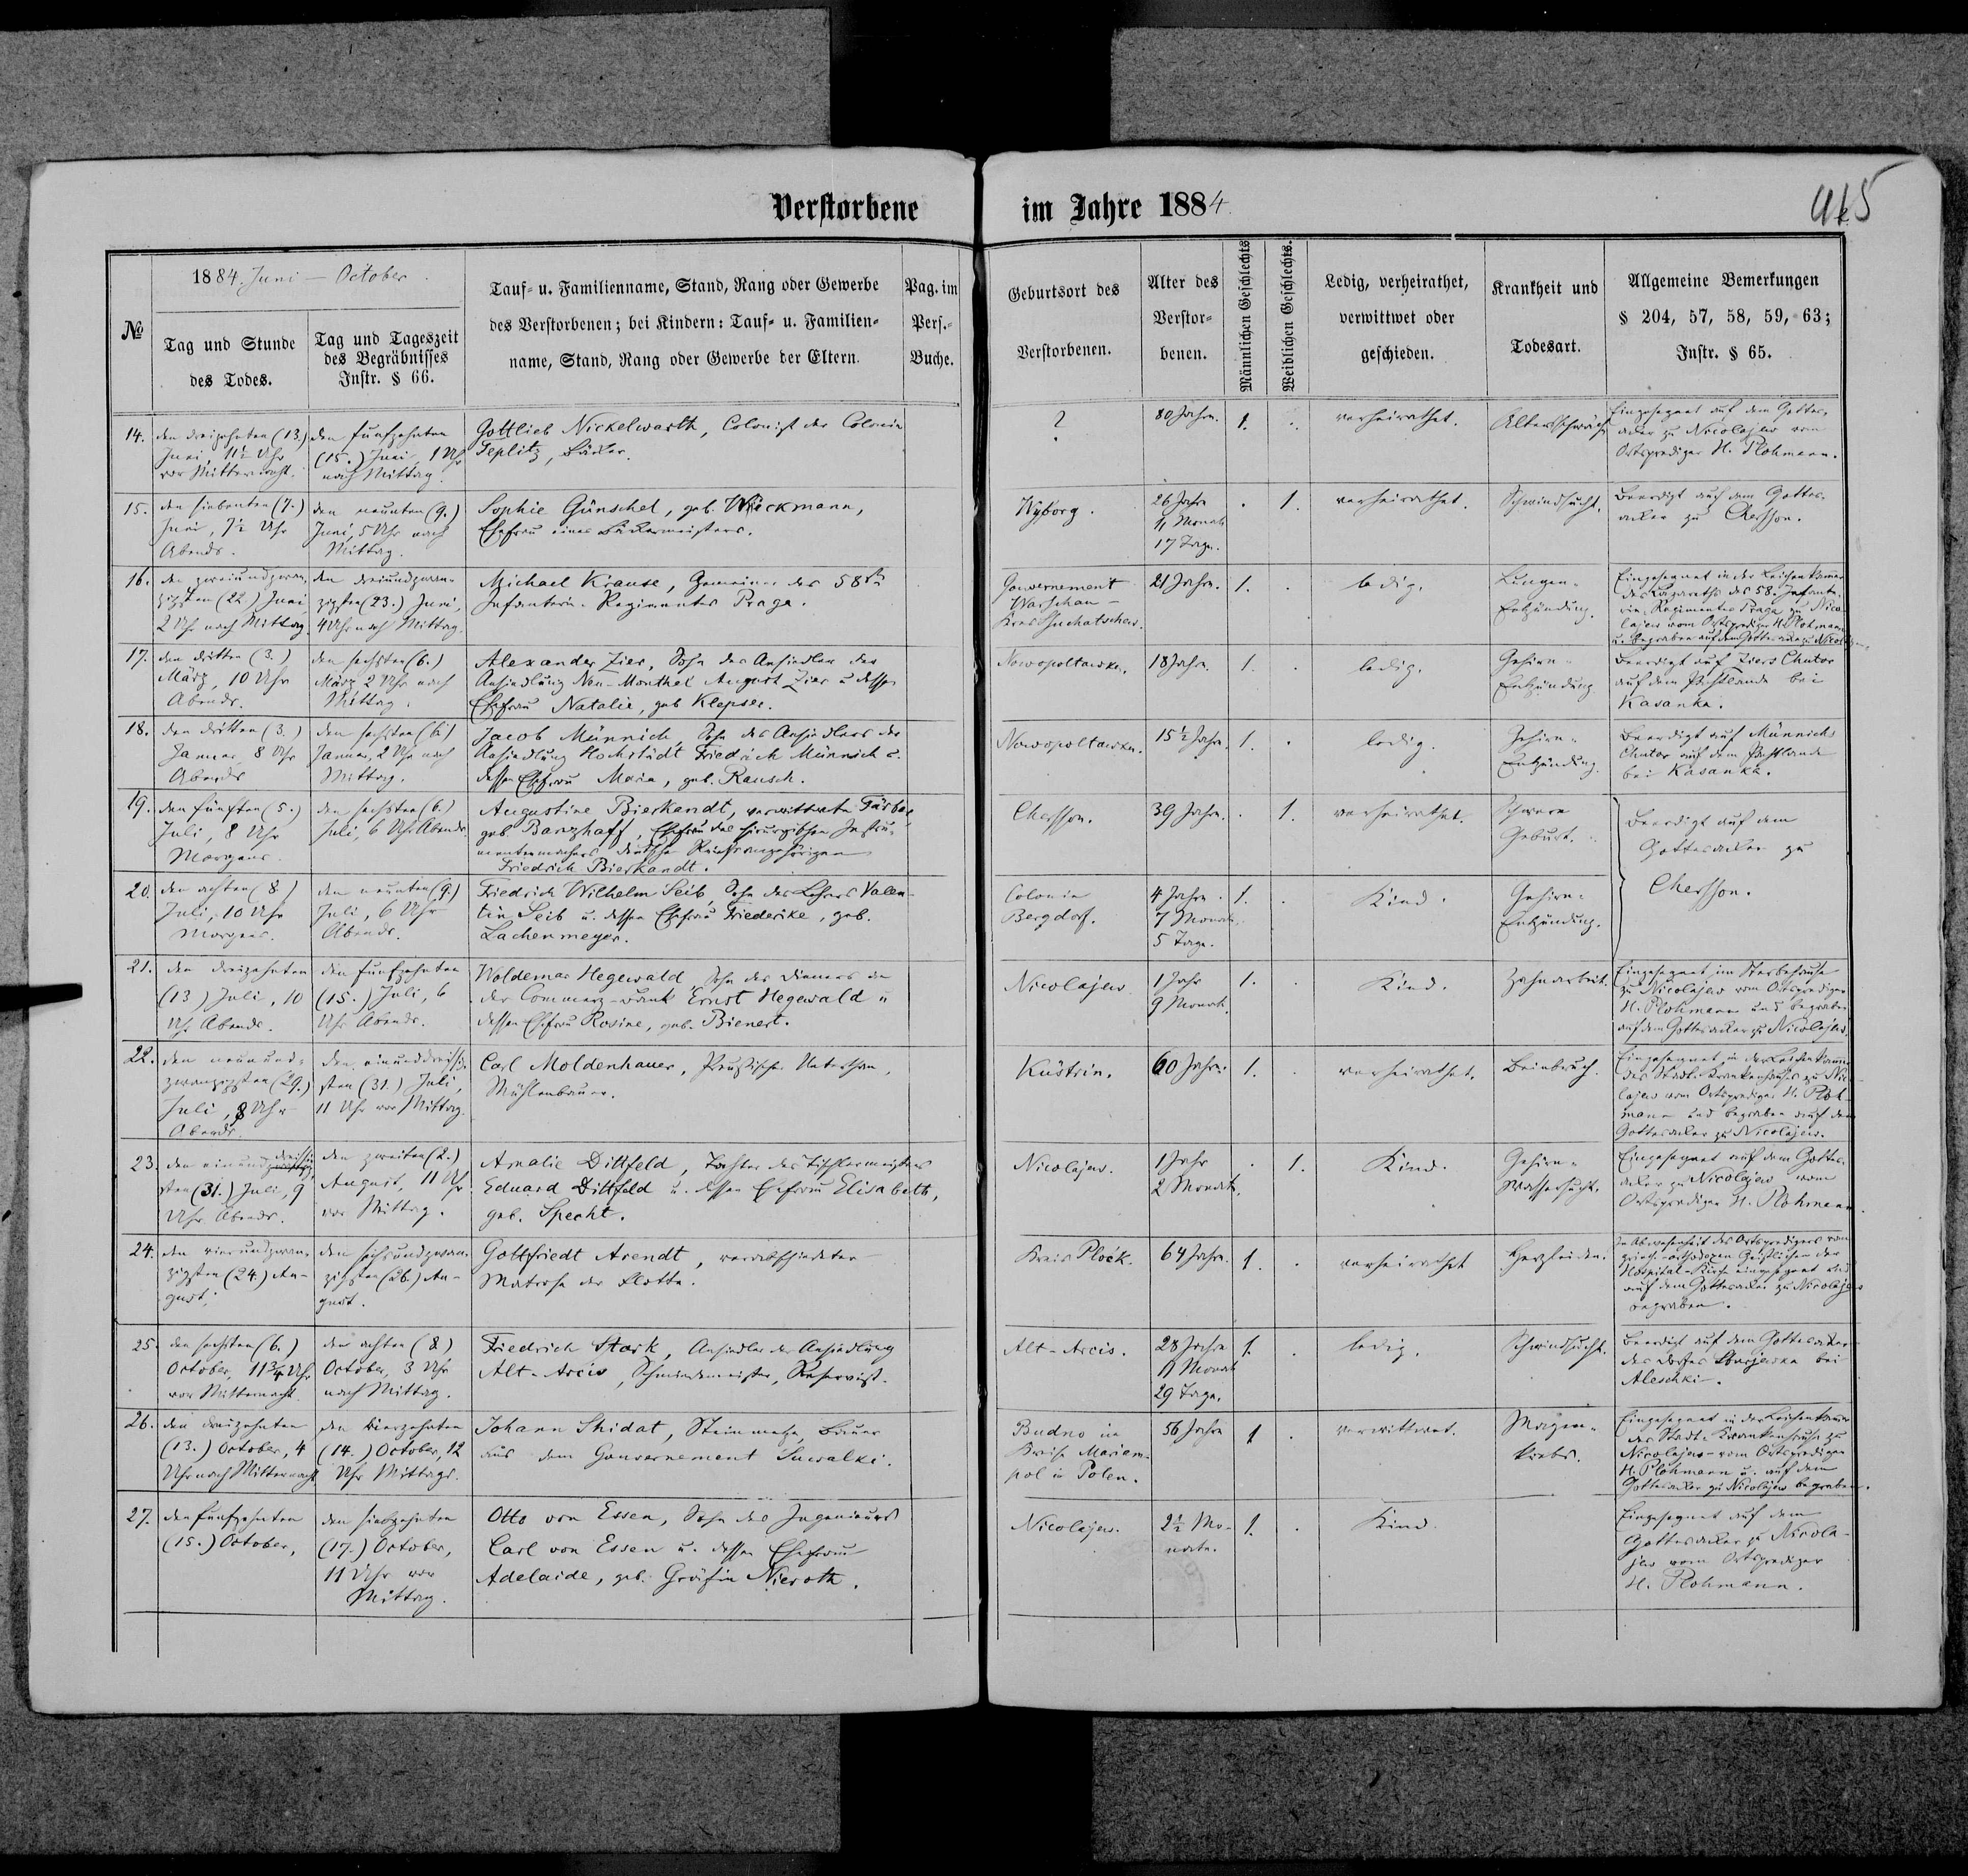 Verstorbene im Jahre 1884
415
№
1884. Juni – October.
Tag und Stunde
des Todes.
Tag und Tageszeit
des Begräbnisses
Instr. § 66.
Tauf- u. Familienname, Stand, Rang oder Gewerbe
des Verstorbenen; bei Kindern: Tauf- u. Familien-
name, Stand, Rang oder Gewerbe der Eltern.
Pag. im
Pers.-
Buche.
Geburtsort des
Verstorbenen.
Alter des
Verstor-
benen.
Männlichen Geschlechts
Weiblichen Geschlechts.
Ledig, verheirathet,
verwittwet oder
geschieden.
Krankheit und
Todesart.
Allgemeine Bemerkungen
§ 204, 57, 58, 59, 63;
Instr. § 65.
14.
den dreizehnten (13.)
Juni, 11½ Uhr
vor Mitternacht.
den fünfzehnten
(15.) Juni, 1 Uhr
nach Mittag.
Gottlieb Nickelwarth, Colonist der Colonie
Teplitz, Bäcker.
?
80 Jahre.
1.
verheirathet.
Altersschwäche
Eingesegnet auf dem Gottes-
acker zu Nicolajew vom
Ortsprediger H. Plohmann.
15.
den siebenten (7.)
Juni, 7½ Uhr
Abends.
den neunten (9.)
Juni, 5 Uhr nach
Mittag.
Sophie Günschel, geb. Wieckmann,
Ehefrau eines Bäckermeisters.
Wyborg.
26 Jahre
11 Monate
17 Tage.
1.
verheirathet.
Schwindsucht.
Beerdigt auf dem Gottes-
acker zu Chersson.
16.
den zweiundzwan-
zigsten (22.) Juni
2 Uhr nach Mittag.
den dreiundzwan-
zigsten (23.) Juni,
4 Uhr nach Mittag.
Michael Krause, Gemeiner des 58ten
Infanterie-Regimentes Praga.
Gouvernement
Warschau –
Kreis Suchatschew.
21 Jahre.
1.
ledig.
Lungen-
Entzündung.
Eingesegnet in der Leichenkammer
des Lazareths des 58. Infante-
rie-Regimentes Praga zu Nico-
lajew vom Ortsprediger H. Plohmann
u. begraben auf dem Gottesacker zu Nicolajew.
17.
den dritten (3.)
März, 10 Uhr
Abends.
den sechsten (6.)
März 2 Uhr nach
Mittag.
Alexander Zier, Sohn des Ansiedlers der
Ansiedlung Neu-Monthal August Zier u. dessen
Ehefrau Natalie, geb. Klepser.
Nowopoltawka.
18 Jahre.
1.
ledig.
Gehirn-
Entzündung.
Beerdigt auf Ziers Chutor
auf dem Pachtlande bei
Kasanka.
18.
den dritten (3.)
Januar, 8 Uhr
Abends
den sechsten (6.)
Januar, 2 Uhr nach
Mittag.
Jacob Münnich, Sohn des Ansiedlers der
Ansiedlung Hochstädt Friedrich Münnich u.
dessen Ehefrau Maria, geb. Rausch.
Nowopoltawka.
15½ Jahre.
1.
ledig.
Gehirn-
Entzündung.
Beerdigt auf Münnichs
Chutor auf dem Pachtlande
bei Kasanka.
19.
den fünften (5.)
Juli, 8 Uhr
Morgens.
den sechsten (6.)
Juli, 6 Uhr Abends.
Augustine Bierkandt, verwittwete Färber,
geb. Banzhaff, Ehefrau des chirurgischen Instru-
mentenmachers deutschen Reichsangehörigen
Friedrich Bierkandt.
Chersson.
39 Jahre.
1.
verheirathet.
Schwere
Geburt.
Beerdigt auf dem
Gottesacker zu
Chersson.
20.
den achten (8.)
Juli, 10 Uhr
Morgens.
den neunten (9.)
Juli, 6 Uhr
Abends.
Friedrich Wilhelm Seib, Sohn des Lehrers Valen-
tin Seib u. dessen Ehefrau Friederike, geb.
Lachenmeyer.
Colonie
Bergdorf.
4 Jahre.
7 Monate
5 Tage.
1.
Kind.
Gehirn-
Entzündung.
21.
den dreizehnten
(13) Juli, 10
Uhr Abends.
den fünfzehnten
(15.) Juli, 6
Uhr Abends.
Woldemar Hegewald, Sohn des Dieners an
der Commerz-Bank Ernst Hegewald u
dessen Ehefrau Rosine, geb. Bienert.
Nicolajew
1 Jahr
9 Monate.
1.
Kind.
Zahnarbeit.
Eingesegnet im Sterbehause
zu Nicolajew vom Ortsprediger
H. Plohmann und begraben
auf dem Gottesacker zu Nicolajew.
22.
den neunund-
zwanzigsten (29.)
Juli, 8 Uhr
Abends.
den einunddreissig-
sten (31.) Juli,
11 Uhr vor Mittag.
Carl Moldenhauer, Preußischer Unterthan,
Mühlenbauer.
Küstrin.
60 Jahre.
1.
verheirathet.
Beinbruch.
Eingesegnet in der Leichenkammer
des Stadt-Krankenhauses zu Nic-
lajew vom Ortsprediger H. Ploh-
mann und begraben auf dem
Gottesacker zu Nicolajew.
23.
den einunddreissig-
sten (31.) Juli, 9
Uhr Abends.
den zweiten (2.)
August, 11 Uhr
vor Mittag.
Amalie Dittfeld, Tochter des Tischlermeisters
Eduard Dittfeld u. dessen Ehefrau Elisabeth,
geb. Specht.
Nicolajew.
1 Jahr
2 Monate.
1.
Kind.
Gehirn-
Wassersucht.
Eingesegnet auf dem Gottes-
acker zu Nicolajew vom
Ortsprediger H. Plohmann.
24.
den vierundzwan-
zigsten (24.) Au-
gust,
den sechsundzwan-
zigsten (26.) Au-
gust.
Gottfriedt Arendt, verabschiedeter
Matrose der Flotte.
Kreis Plock.
64 Jahre.
1.
verheirathet
Herzleiden.
In Abwesenheit des Ortspredigers vom
griech.-orthodoxen Geistlichen der
Hospital-Kirche eingesegnet und
auf dem Gottesacker zu Nicolajew
begraben.
25.
den sechsten (6.)
October, 11¾ Uhr
vor Mitternacht.
den achten (8)
October, 3 Uhr
nach Mittag.
Friedrich Stark, Ansiedler der Ansiedlung
Alt-Arcis, Schmiedemeister, Reservist.
Alt-Arcis.
28 Jahre
11 Monate
29 Tage.
1.
ledig.
Schwindsucht.
Beerdigt auf dem Gottesacker
des Dorfes bei
Aleschki.
26.
den dreizehnten
(13.) October, 4
Uhr nach Mitternacht
den vierzehnten
(14.) October, 12
Uhr Mittags.
Johann Skidat, Steinmetze, Bauer
aus dem Gouvernement Suwalki.
Budno im
Kreise Mariam-
pol in Polen.
56 Jahre
1
verwittwet.
Magen-
krebs.
Eingesegnet in der Leichenkammer
des Stadt-Krankenhauses zu
Nicolajew vom Ortsprediger
H. Plohmann u. auf dem
Gottesacker zu Nicolajew begraben.
27.
den fünfzehnten
(15.) October,
den siebzehnten
(17.) October,
11 Uhr vor
Mittag.
Otto von Essen, Sohn des Ingenieurs
Carl von Essen u. dessen Ehefrau
Adelaide, geb. Gräfin Nieroth.
Nicolajew.
2½ Mo-
nate.
1.
Kind.
Eingesegnet auf dem
Gottesacker zu Nicola-
jew vom Ortsprediger
H. Plohmann.